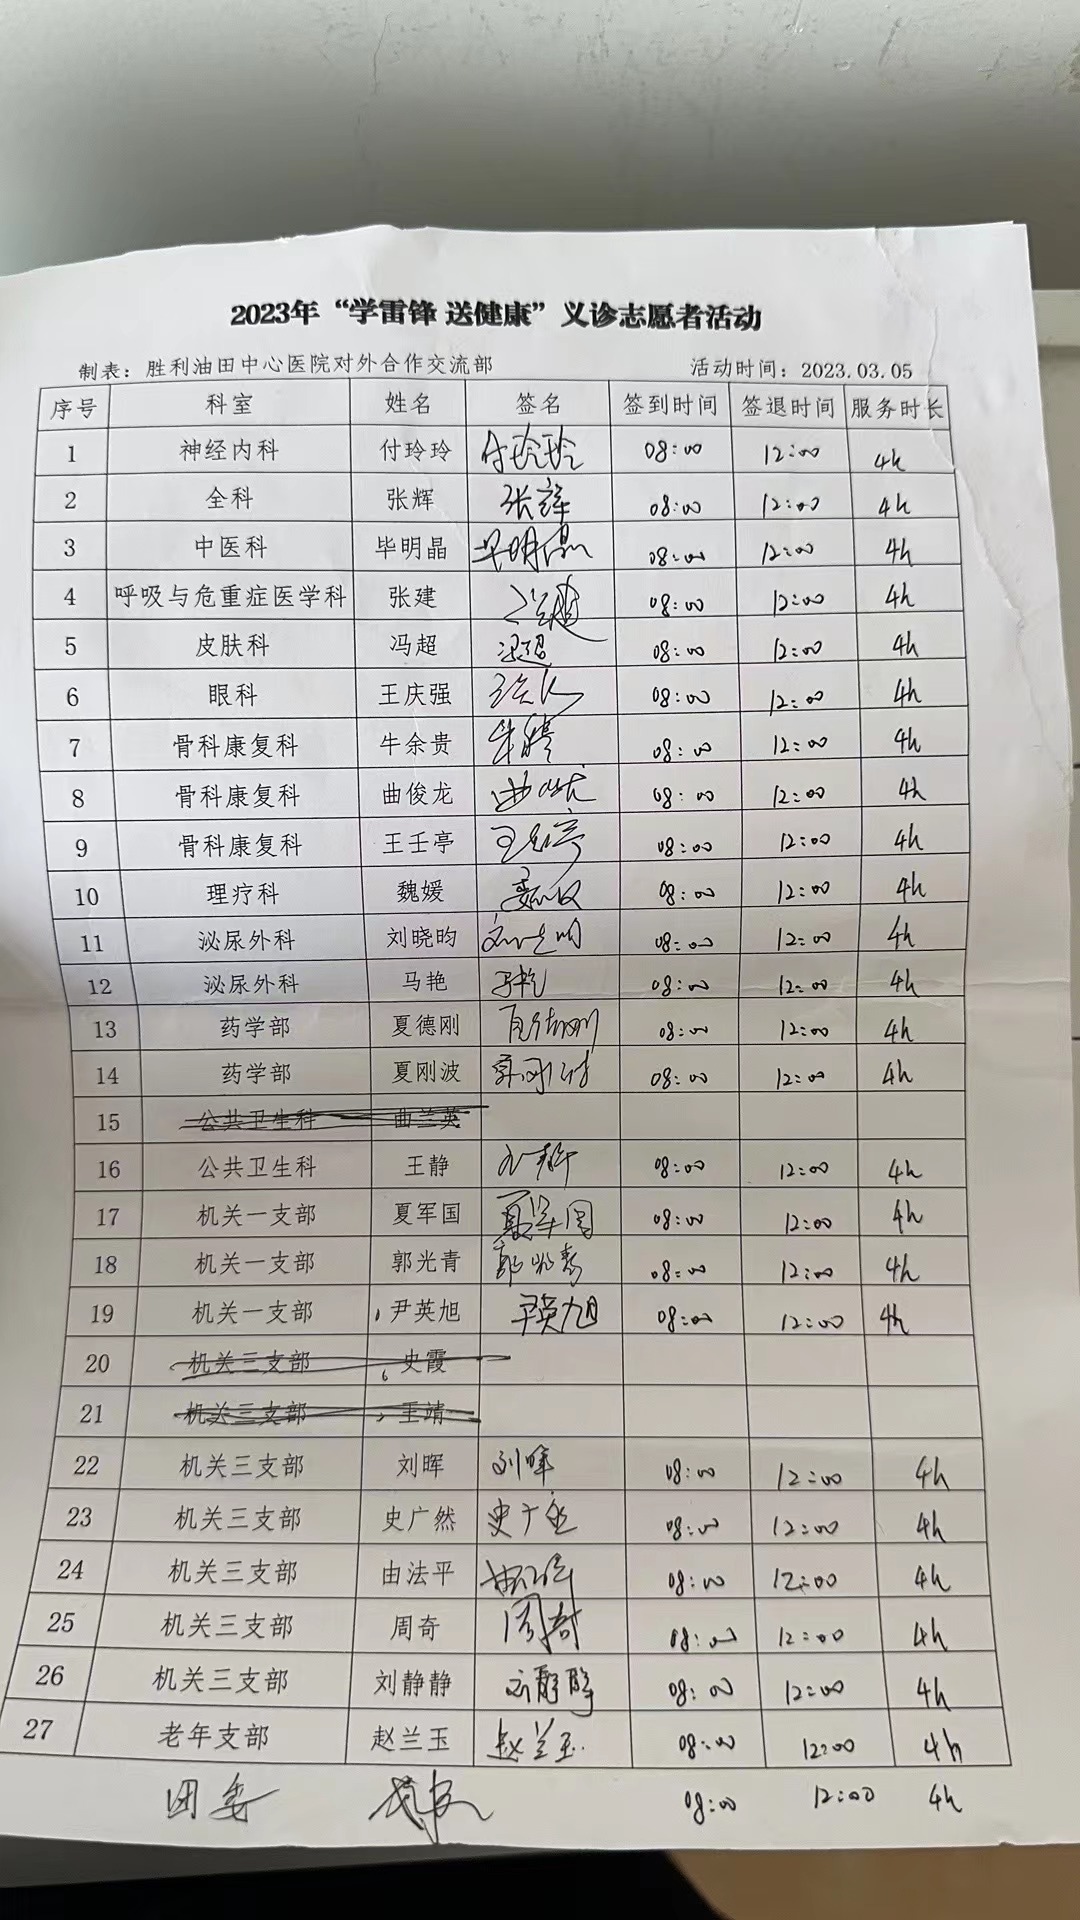 2023年“学雷锋 送健康”义诊志愿者活动
制表：胜利油田中心医院对外合作交流部 活动时间：2023.03.05
序号 科室 姓名 签名 签到时间 签退时间 服务时长
1 神经内科 付玲玲 付玲玲 08:00 12:00 4h
2 全科 张辉 张辉 08:00 12:00 4h
3 中医科 毕明晶 毕明晶 08:00 12:00 4h
4 呼吸与危重症医学科 张建 张建 08:00 12:00 4h
5 皮肤科 冯超 冯超 08:00 12:00 4h
6 眼科 王庆强 08:00 12:00 4h
7 骨科康复科 牛余贵 08:00 12:00 4h
8 骨科康复科 曲俊龙 曲俊龙 08:00 12:00 4h
9 骨科康复科 王壬亭 王壬亭 08:00 12:00 4h
10 理疗科 魏媛 08:00 12:00 4h
11 泌尿外科 刘晓昀 08:00 12:00 4h
12 泌尿外科 马艳 马艳 08:00 12:00 4h
13 药学部 夏德刚 夏德刚 08:00 12:00 4h
14 药学部 夏刚波 08:00 12:00 4h
15 公共卫生科 曲兰英
16 公共卫生科 王静 08:00 12:00 4h
17 机关一支部 夏军国 夏军国 08:00 12:00 4h
18 机关一支部 郭光青 郭光青 08:00 12:00 4h
19 机关一支部 尹英旭 尹英旭 08:00 12:00 4h
20 机关三支部 史霞
21 机关三支部 王靖
22 机关三支部 刘晖 刘晖 08:00 12:00 4h
23 机关三支部 史广然 史广然 08:00 12:00 4h
24 机关三支部 由法平 08:00 12:00 4h
25 机关三支部 周奇 周奇 08:00 12:00 4h
26 机关三支部 刘静静 刘静静 08:00 12:00 4h
27 老年支部 赵兰玉 赵兰玉 08:00 12:00 4h
团委 08:00 12:00 4h